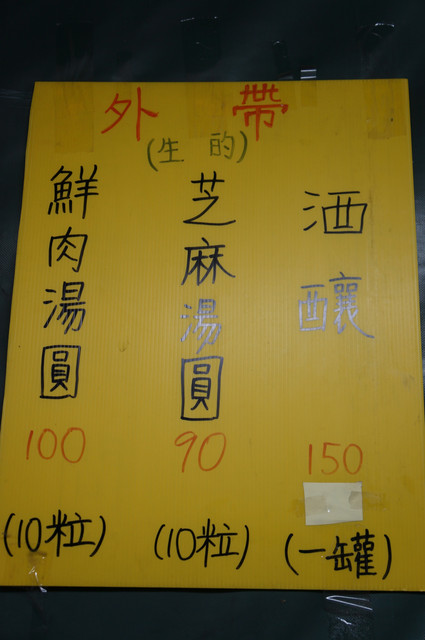 外帶
(生的)
鮮肉湯圓
100
(10粒)
芝麻湯圓
90
(10粒)
酒釀
150
(一罐)